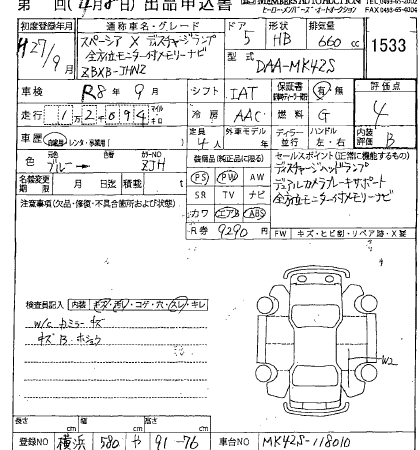 第 回(4月8日)出品申込書
MEMBERS AUTO AUCTION
ヒーローメンバーズオートオークション
FAX 0493-65-4004
初度登録年月
H27/9
通称車名・グレード
スペーシア X ディスチャージランプ
全方位モニター付メモリーナビ
ZBXB-JHN2
ドア
5
形状
HB
排気量
660 cc
1533
型式
DAA-MK42S
車検
R8年 9月
シフト
IAT
保証書
有・無
評価点
4
走行
12094
マイル
キロ
冷房
AAC
燃料
G
車歴
自家用・レンタ・事業用
定員
4人
外車モデル
ディーラー
並行
ハンドル
左・右
内装
評価
B
色
元色
ブルー
色替
カラーNO
ZJH
名義変更
期限
月 日迄
積載 t
装備品(純正品に限る)
PS PW AW
SR TV ナビ
カワ エアB ABS
R券 9290円
セールスポイント(正常に機能するもの)
ディスチャージヘッドランプ
デュアルカメラブレーキサポート
全方位モニター付メモリーナビ
FW キズ・ヒビ割・リペア跡・X要
注意事項(欠品・修復・不具合箇所および状態)
検査員記入 内装 キズ・汚レ・コゲ・穴・スレ・キレ
W/C カミラーキズ
キズB・ホジョウ
W2
長さ cm
幅 cm
高さ cm
登録NO
横浜 580 や 91-76
車台NO
MK42S-118010